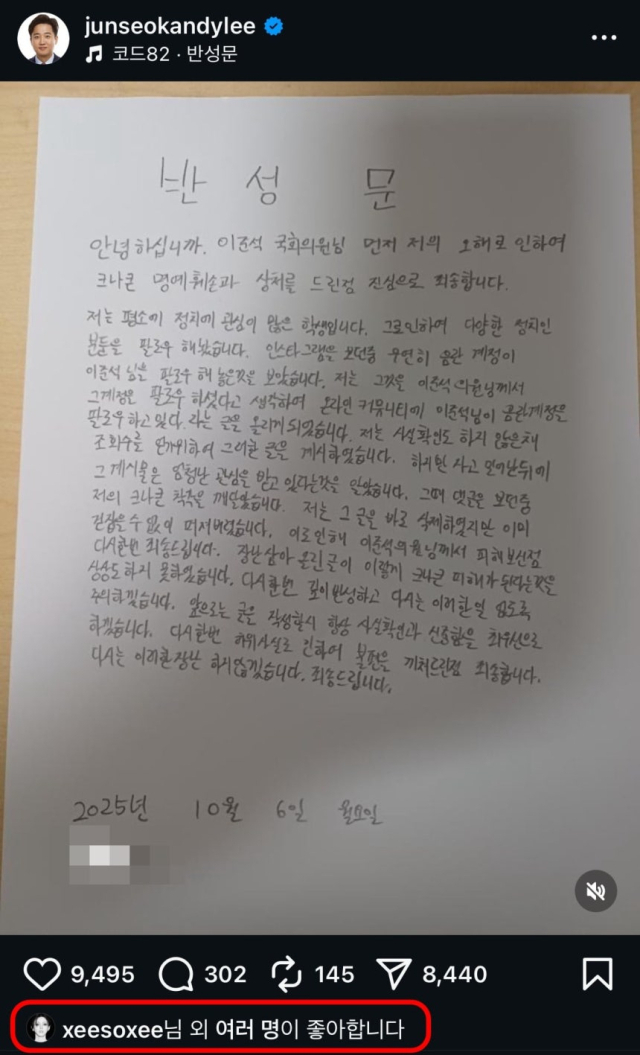 junseokandylee
코드82 · 반성문
반 성 문
안녕하십니까. 이준석 국회의원님 먼저 저의 오해로 인하여
크나큰 명예훼손과 상처를 드린점 진심으로 죄송합니다.
저는 평소에 정치에 관심이 많은 학생입니다. 그로인하여 다양한 정치인
분들을 팔로우 해놨습니다. 인스타그램을 보던중 우연히 음란 계정이
이준석 님을 팔로우 해 놓은것을 보았습니다. 저는 그것을 이준석 의원님께서
그계정을 팔로우 하셨다고 생각하여 온라인 커뮤니티에 이준석님이 음란계정을
팔로우하고 있다. 라는 글을 올리게 되었습니다. 저는 사실확인도 하지 않은채
조회수를 위하여 그러한 글을 게시하였습니다. 하지만 자고 일어난뒤에
그 게시물은 엄청난 관심을 받고 있다는것을 알았습니다. 그때 댓글을 보던중
저의 크나큰 착각을 깨달았습니다. 저는 그 글을 바로 삭제하였지만 이미
걷잡을 수 없이 퍼져버렸습니다. 이로인해 이준석의원님께서 피해보신점
다시한번 죄송드립니다. 장난삼아 올린글이 이렇게 크나큰 피해가 된다는것을
상상도 하지 못하였습니다. 다시한번 깊이반성하고 다시는 이러한일 없도록
주의하겠습니다. 앞으로는 글을 작성할시 항상 사실확인과 신중함을 최우선으로
하겠습니다. 다시한번 허위사실로 인하여 불편을 끼쳐드린점 죄송합니다.
다시는 이러한장난 하지않겠습니다. 죄송드립니다.
2025년 10월 6일 월요일
9,495 302 145 8,440
xeesoxee님 외 여러 명이 좋아합니다